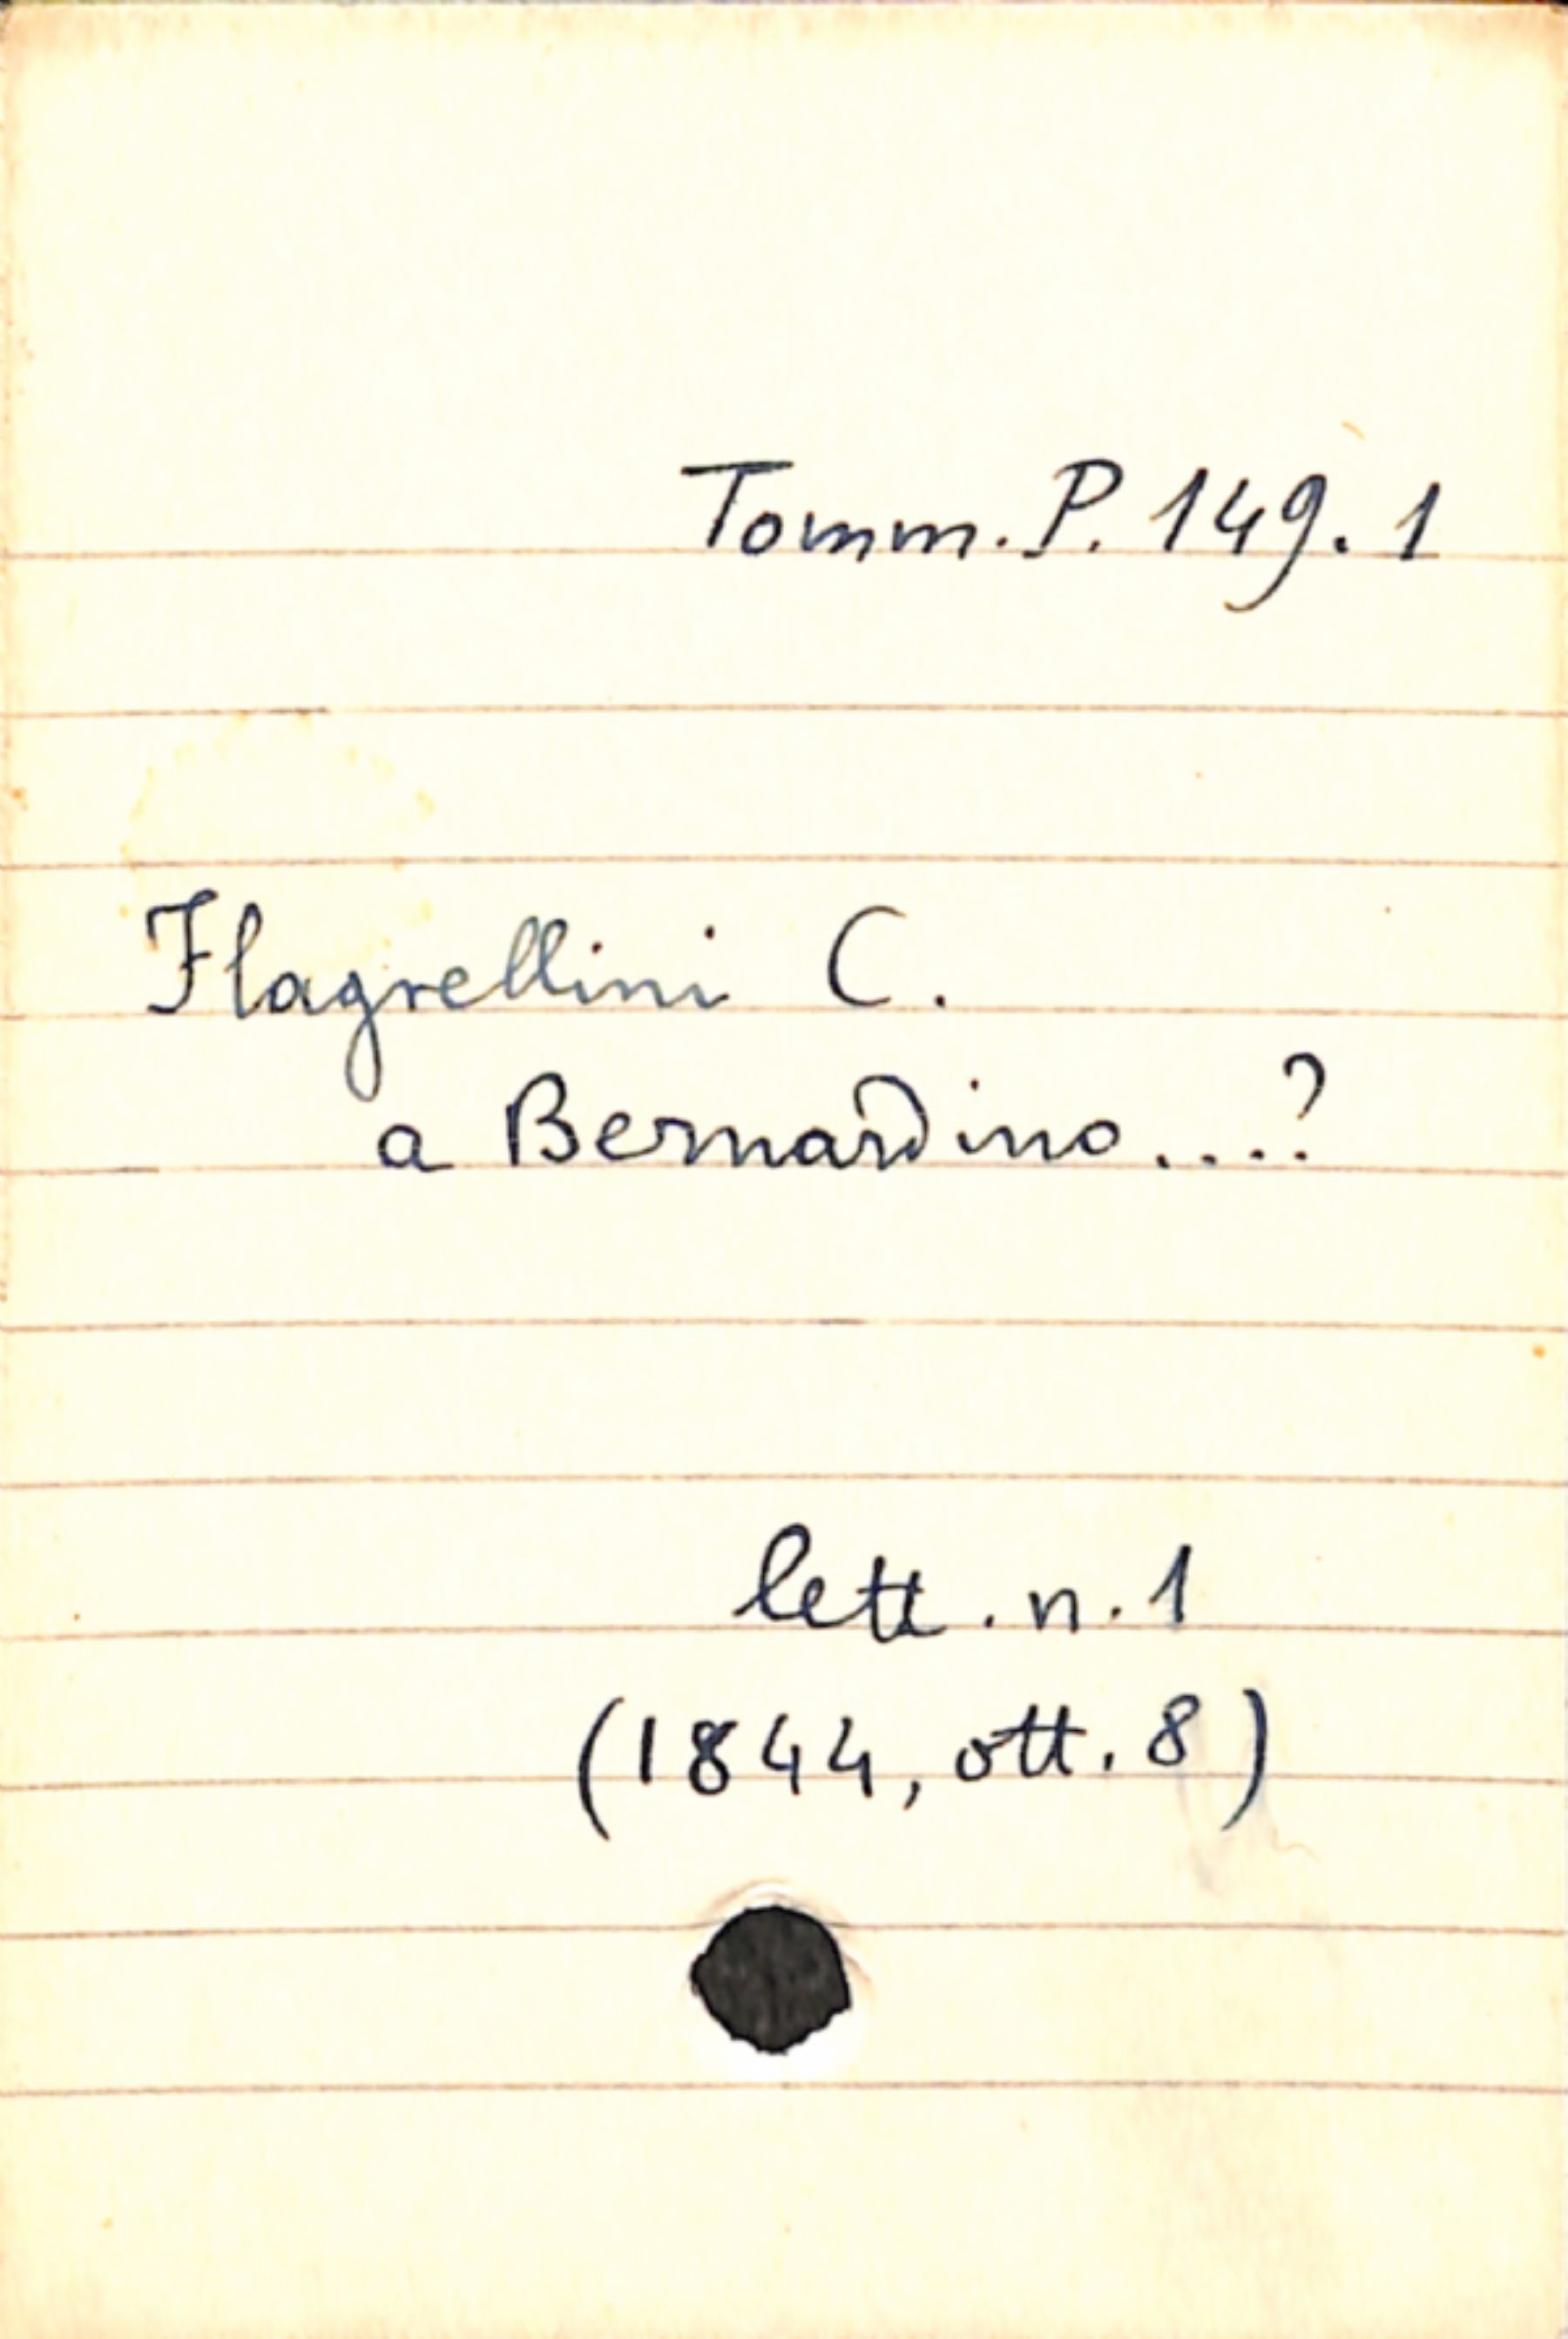 Tomm. P. 149. 1
Flagrellini C.
a Bernardino....?
lett. n. 1
(1844, ott. 8)